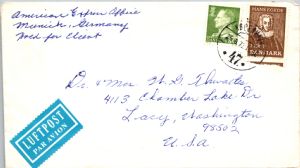 American Express Office
Munich, Germany
Hold for Client
HANS EGEDE
DANMARK
47.
Dr. & Mrs. H. G.
4113 Chamber Lake Dr
Lacey, Washington
98502
U.S.A
LUFTPOST
PAR AVION